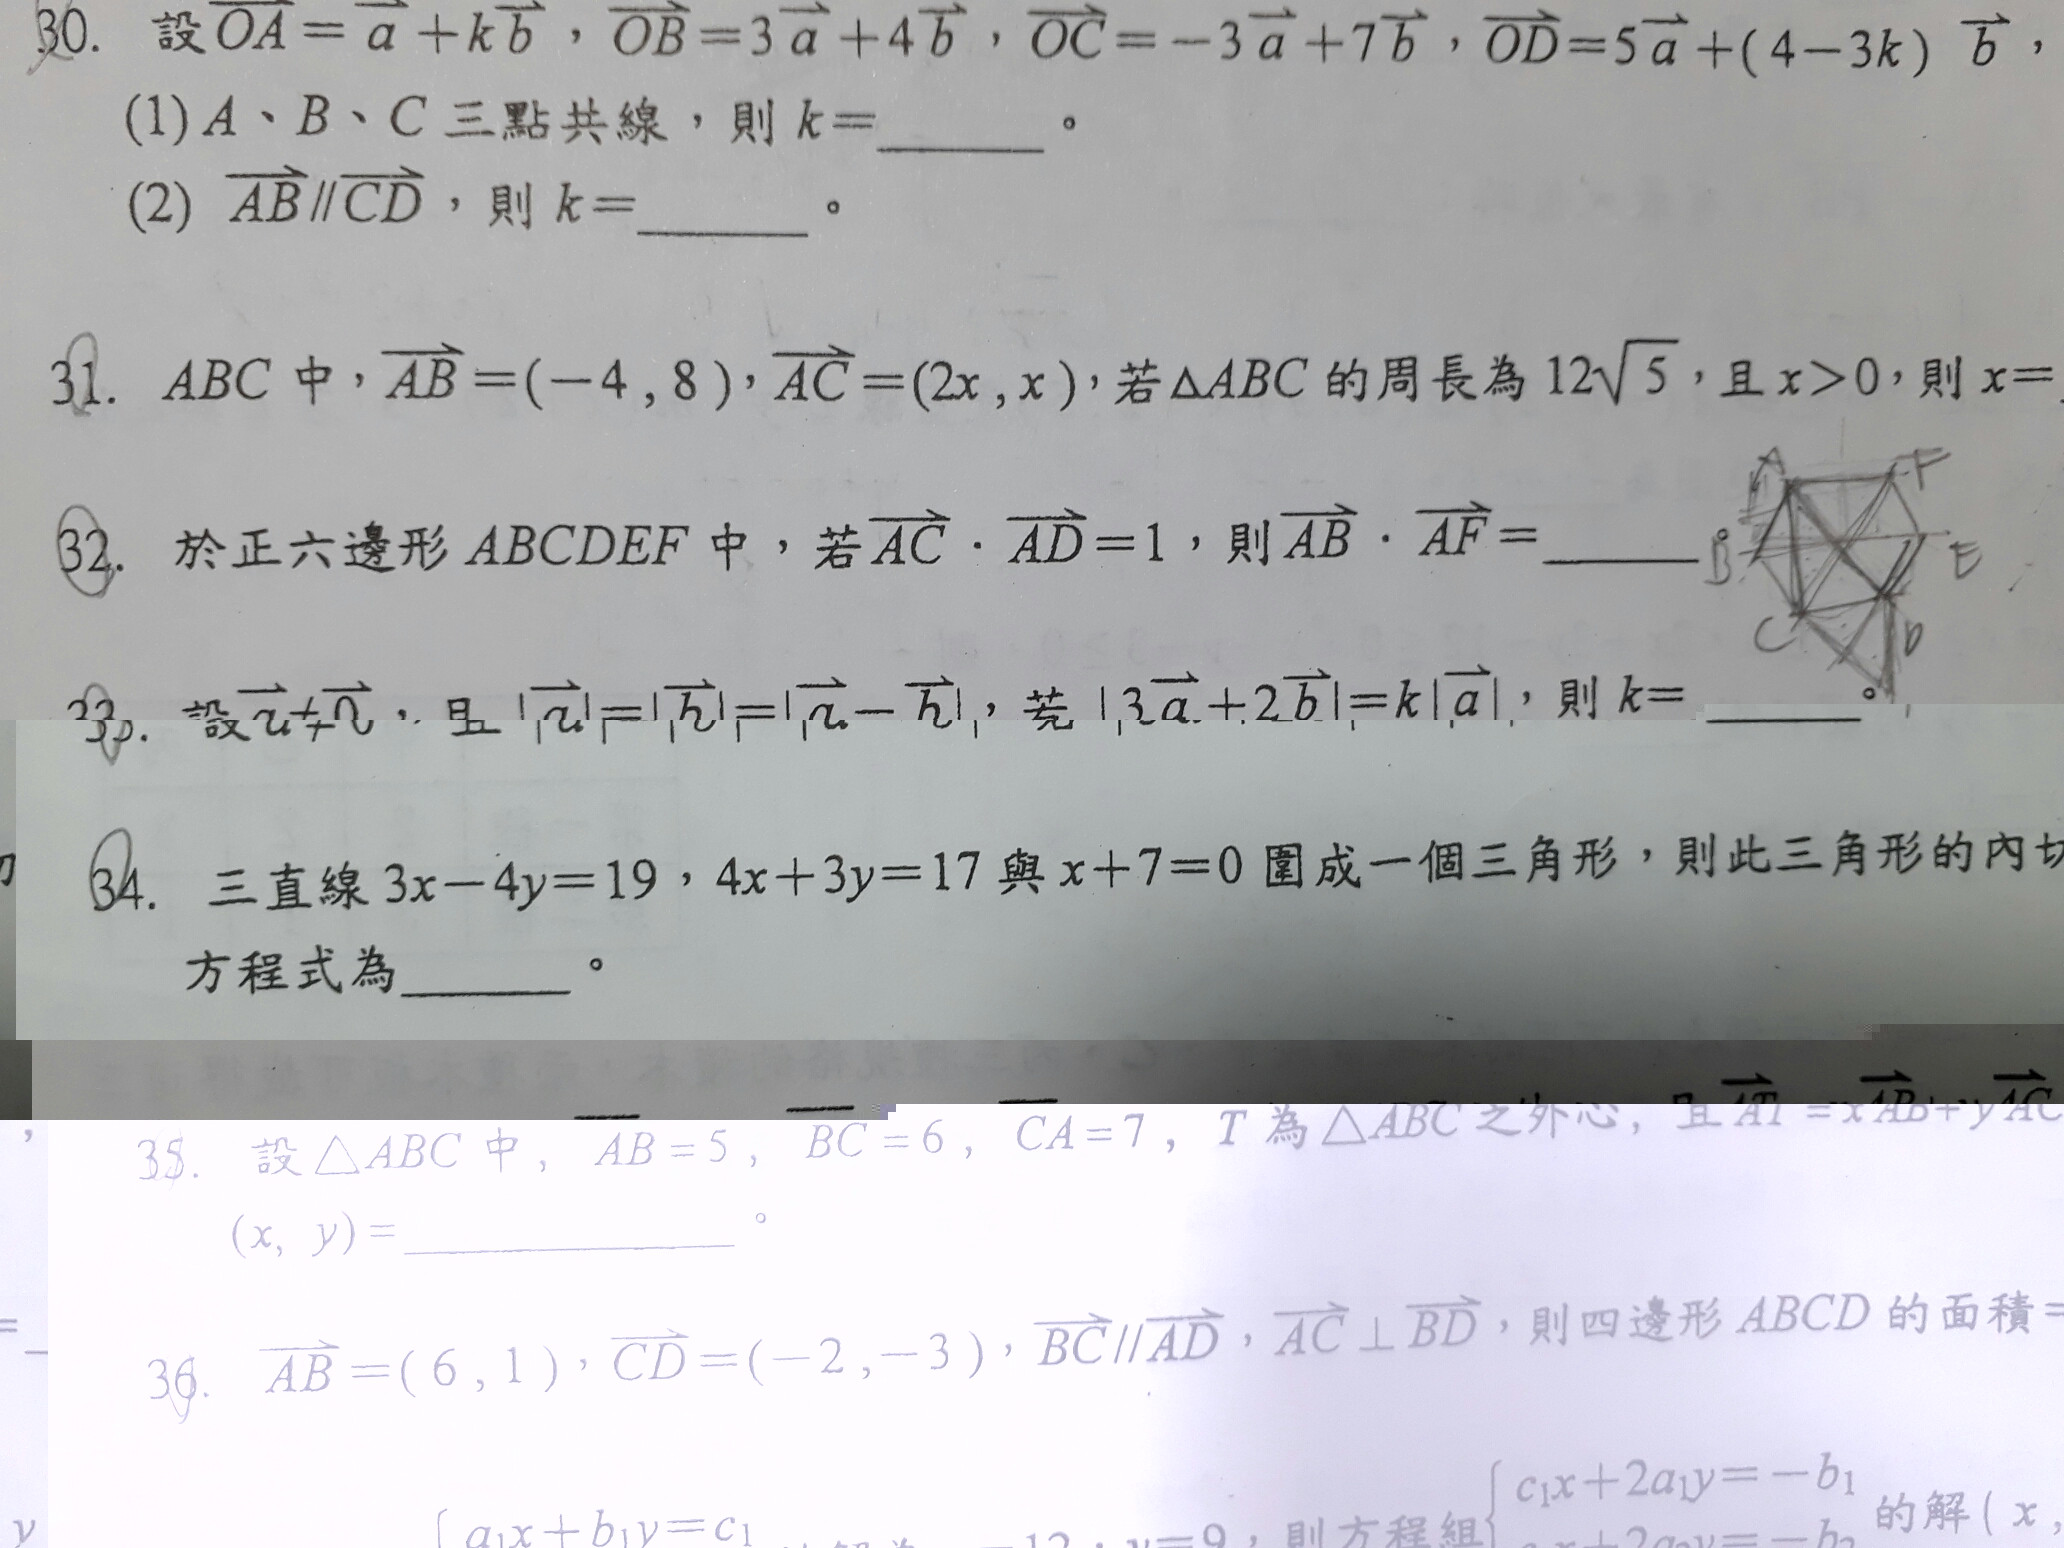 30. 設 OA = a + kb , OB = 3a + 4b , OC = −3a + 7b , OD = 5a + (4−3k) b ,
(1) A、B、C 三點共線，則 k = ______ 。
(2) AB // CD ，則 k = ______ 。
31. ABC 中，AB = (−4 , 8 )，AC = (2x , x )，若 △ABC 的周長為 12√5 ，且 x > 0，則 x =
32. 於正六邊形 ABCDEF 中，若 AC · AD = 1，則 AB · AF = ______
A F
B E
C D
33. 設 ，且 ，若 |3a + 2b| = k|a|，則 k = ______ 。
34. 三直線 3x − 4y = 19，4x + 3y = 17 與 x + 7 = 0 圍成一個三角形，則此三角形的內切
方程式為 ______ 。
35. 設 △ABC 中, AB = 5 , BC = 6 , CA = 7 , T 為 △ABC 之外心, 且 AT = xAB + yAC
(x, y) = ______ 。
36. AB = ( 6 , 1 )，CD = (−2 , −3 )，BC // AD，AC ⊥ BD，則四邊形 ABCD 的面積 =
{ a₁x + b₁y = c₁ 12，y = 9，則方程組 { c₁x + 2a₁y = −b₁ 的解 ( x ,
y